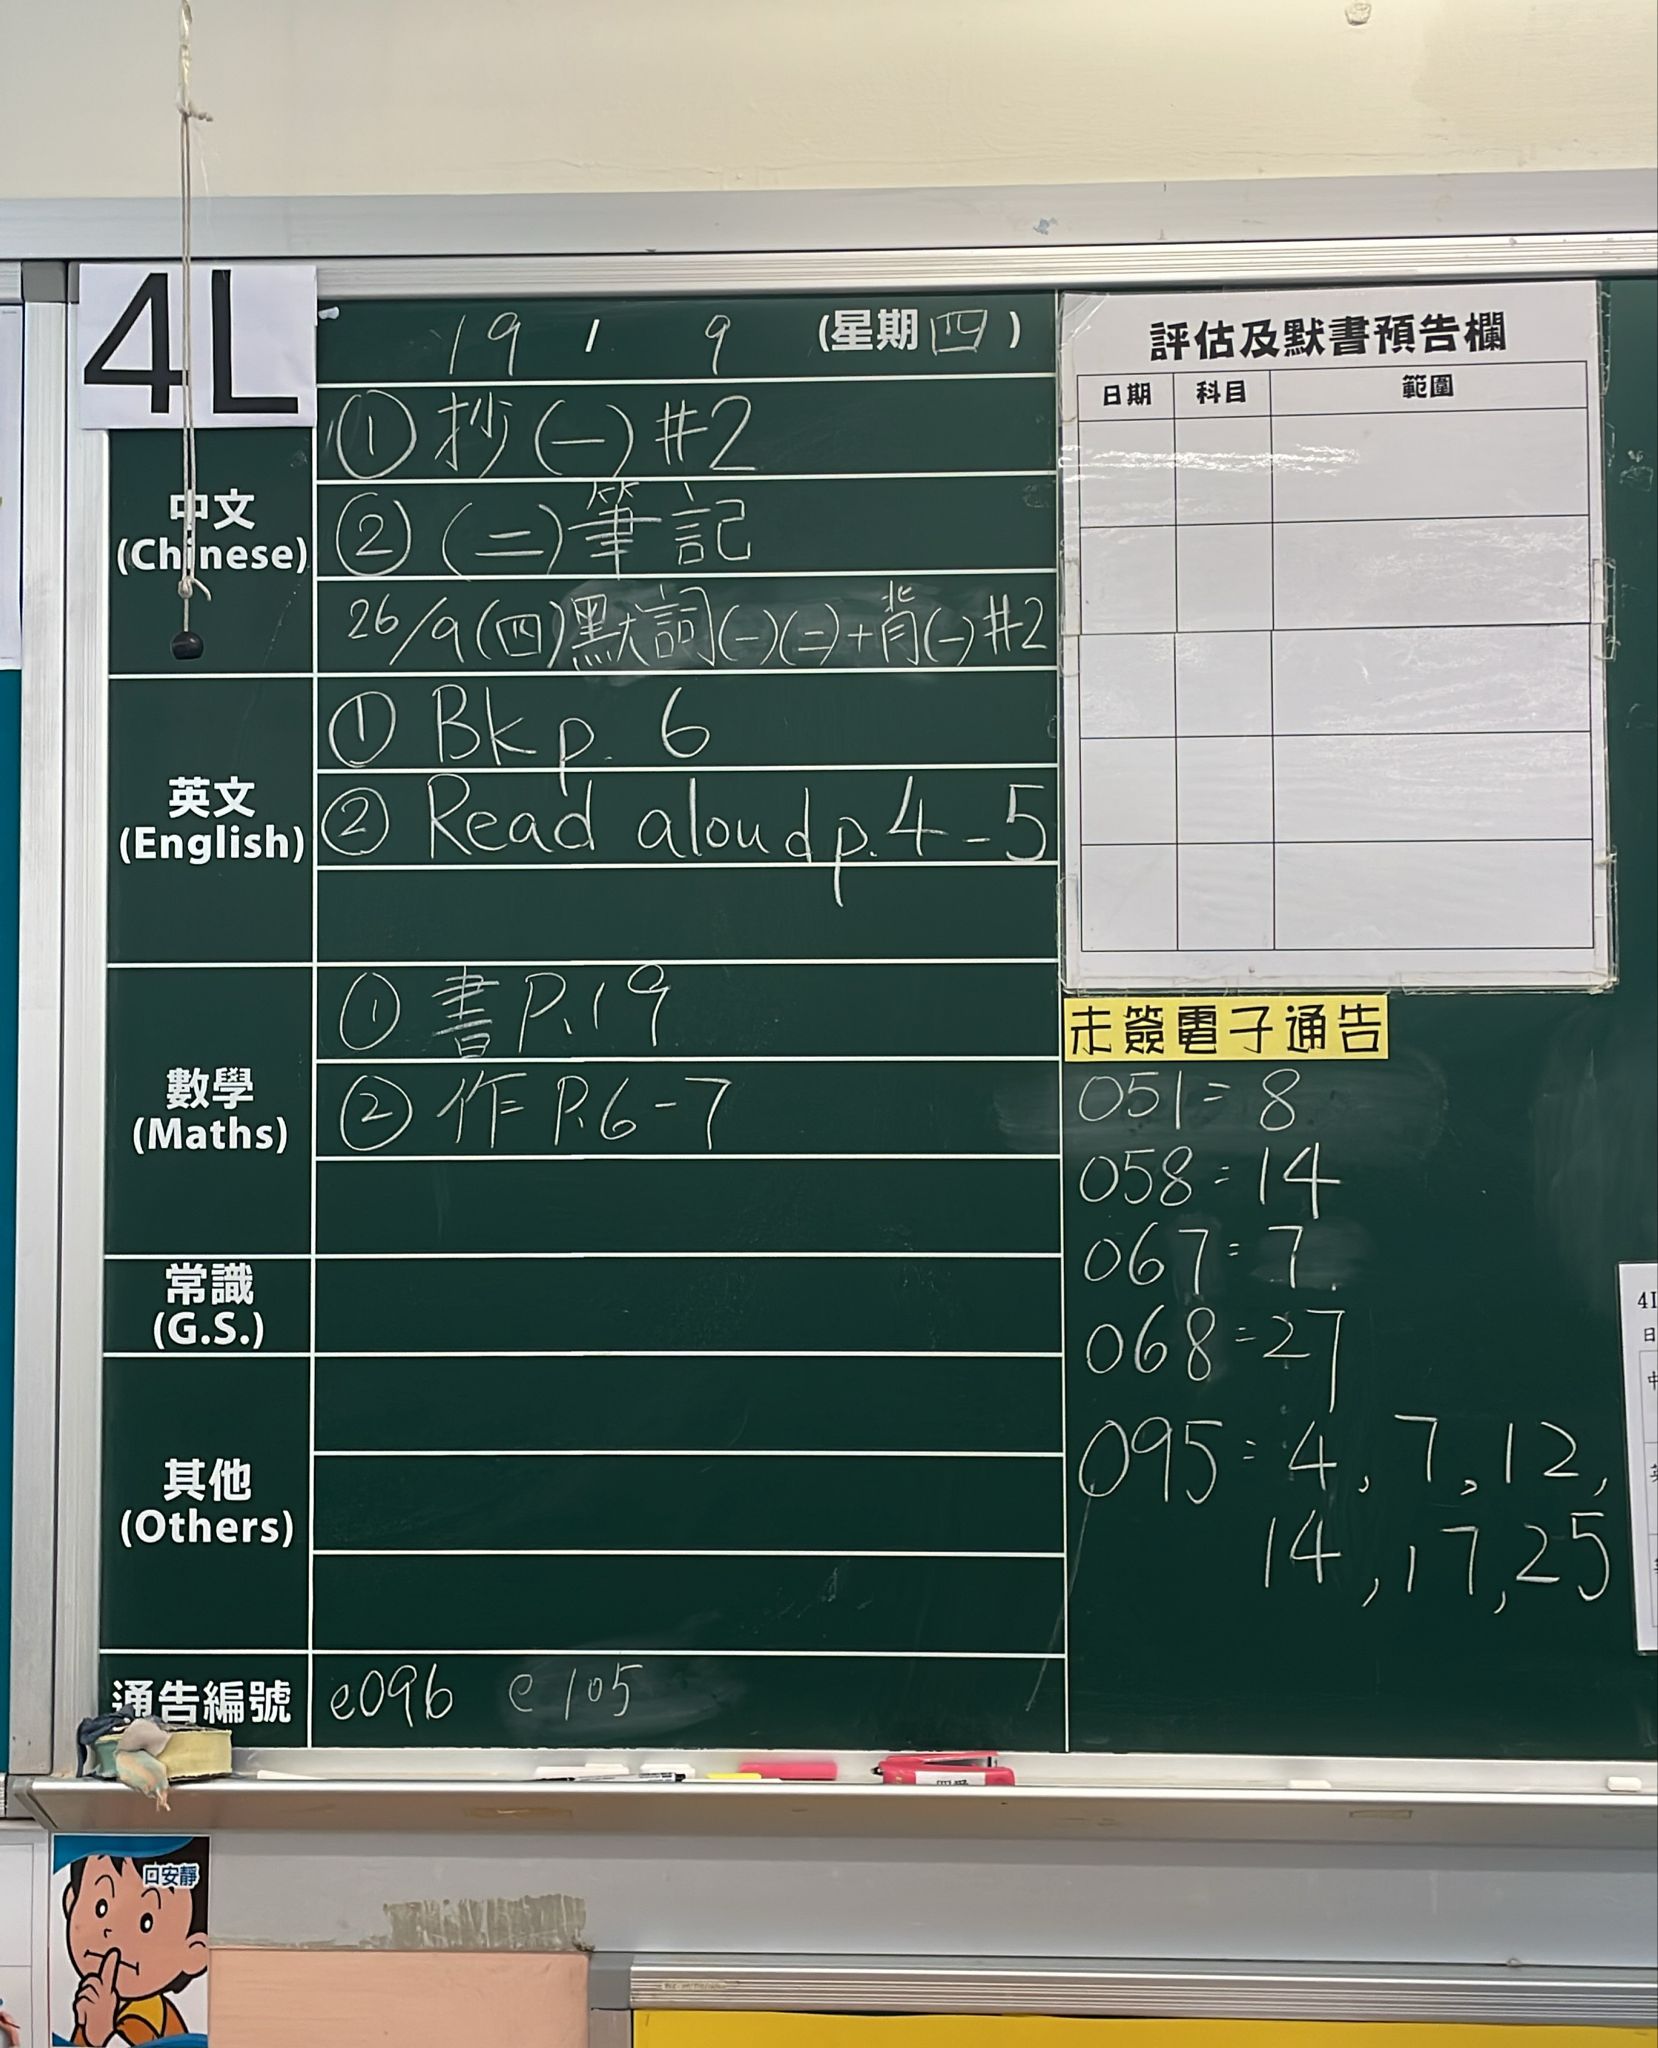 4L
19 / 9 (星期四)
中文
(Chinese)
① 抄(一)#2
② (二)筆記
26/9(四)默詞(一)(二)+背(一)#2
英文
(English)
① Bk p. 6
② Read aloud p.4-5
數學
(Maths)
① 書P.19
② 作P.6-7
常識
(G.S.)
其他
(Others)
通告編號
e096 e105
評估及默書預告欄
日期 科目 範圍
未簽電子通告
051=8
058=14
067=7
068=27
095=4,7,12,
14,17,25
口安靜